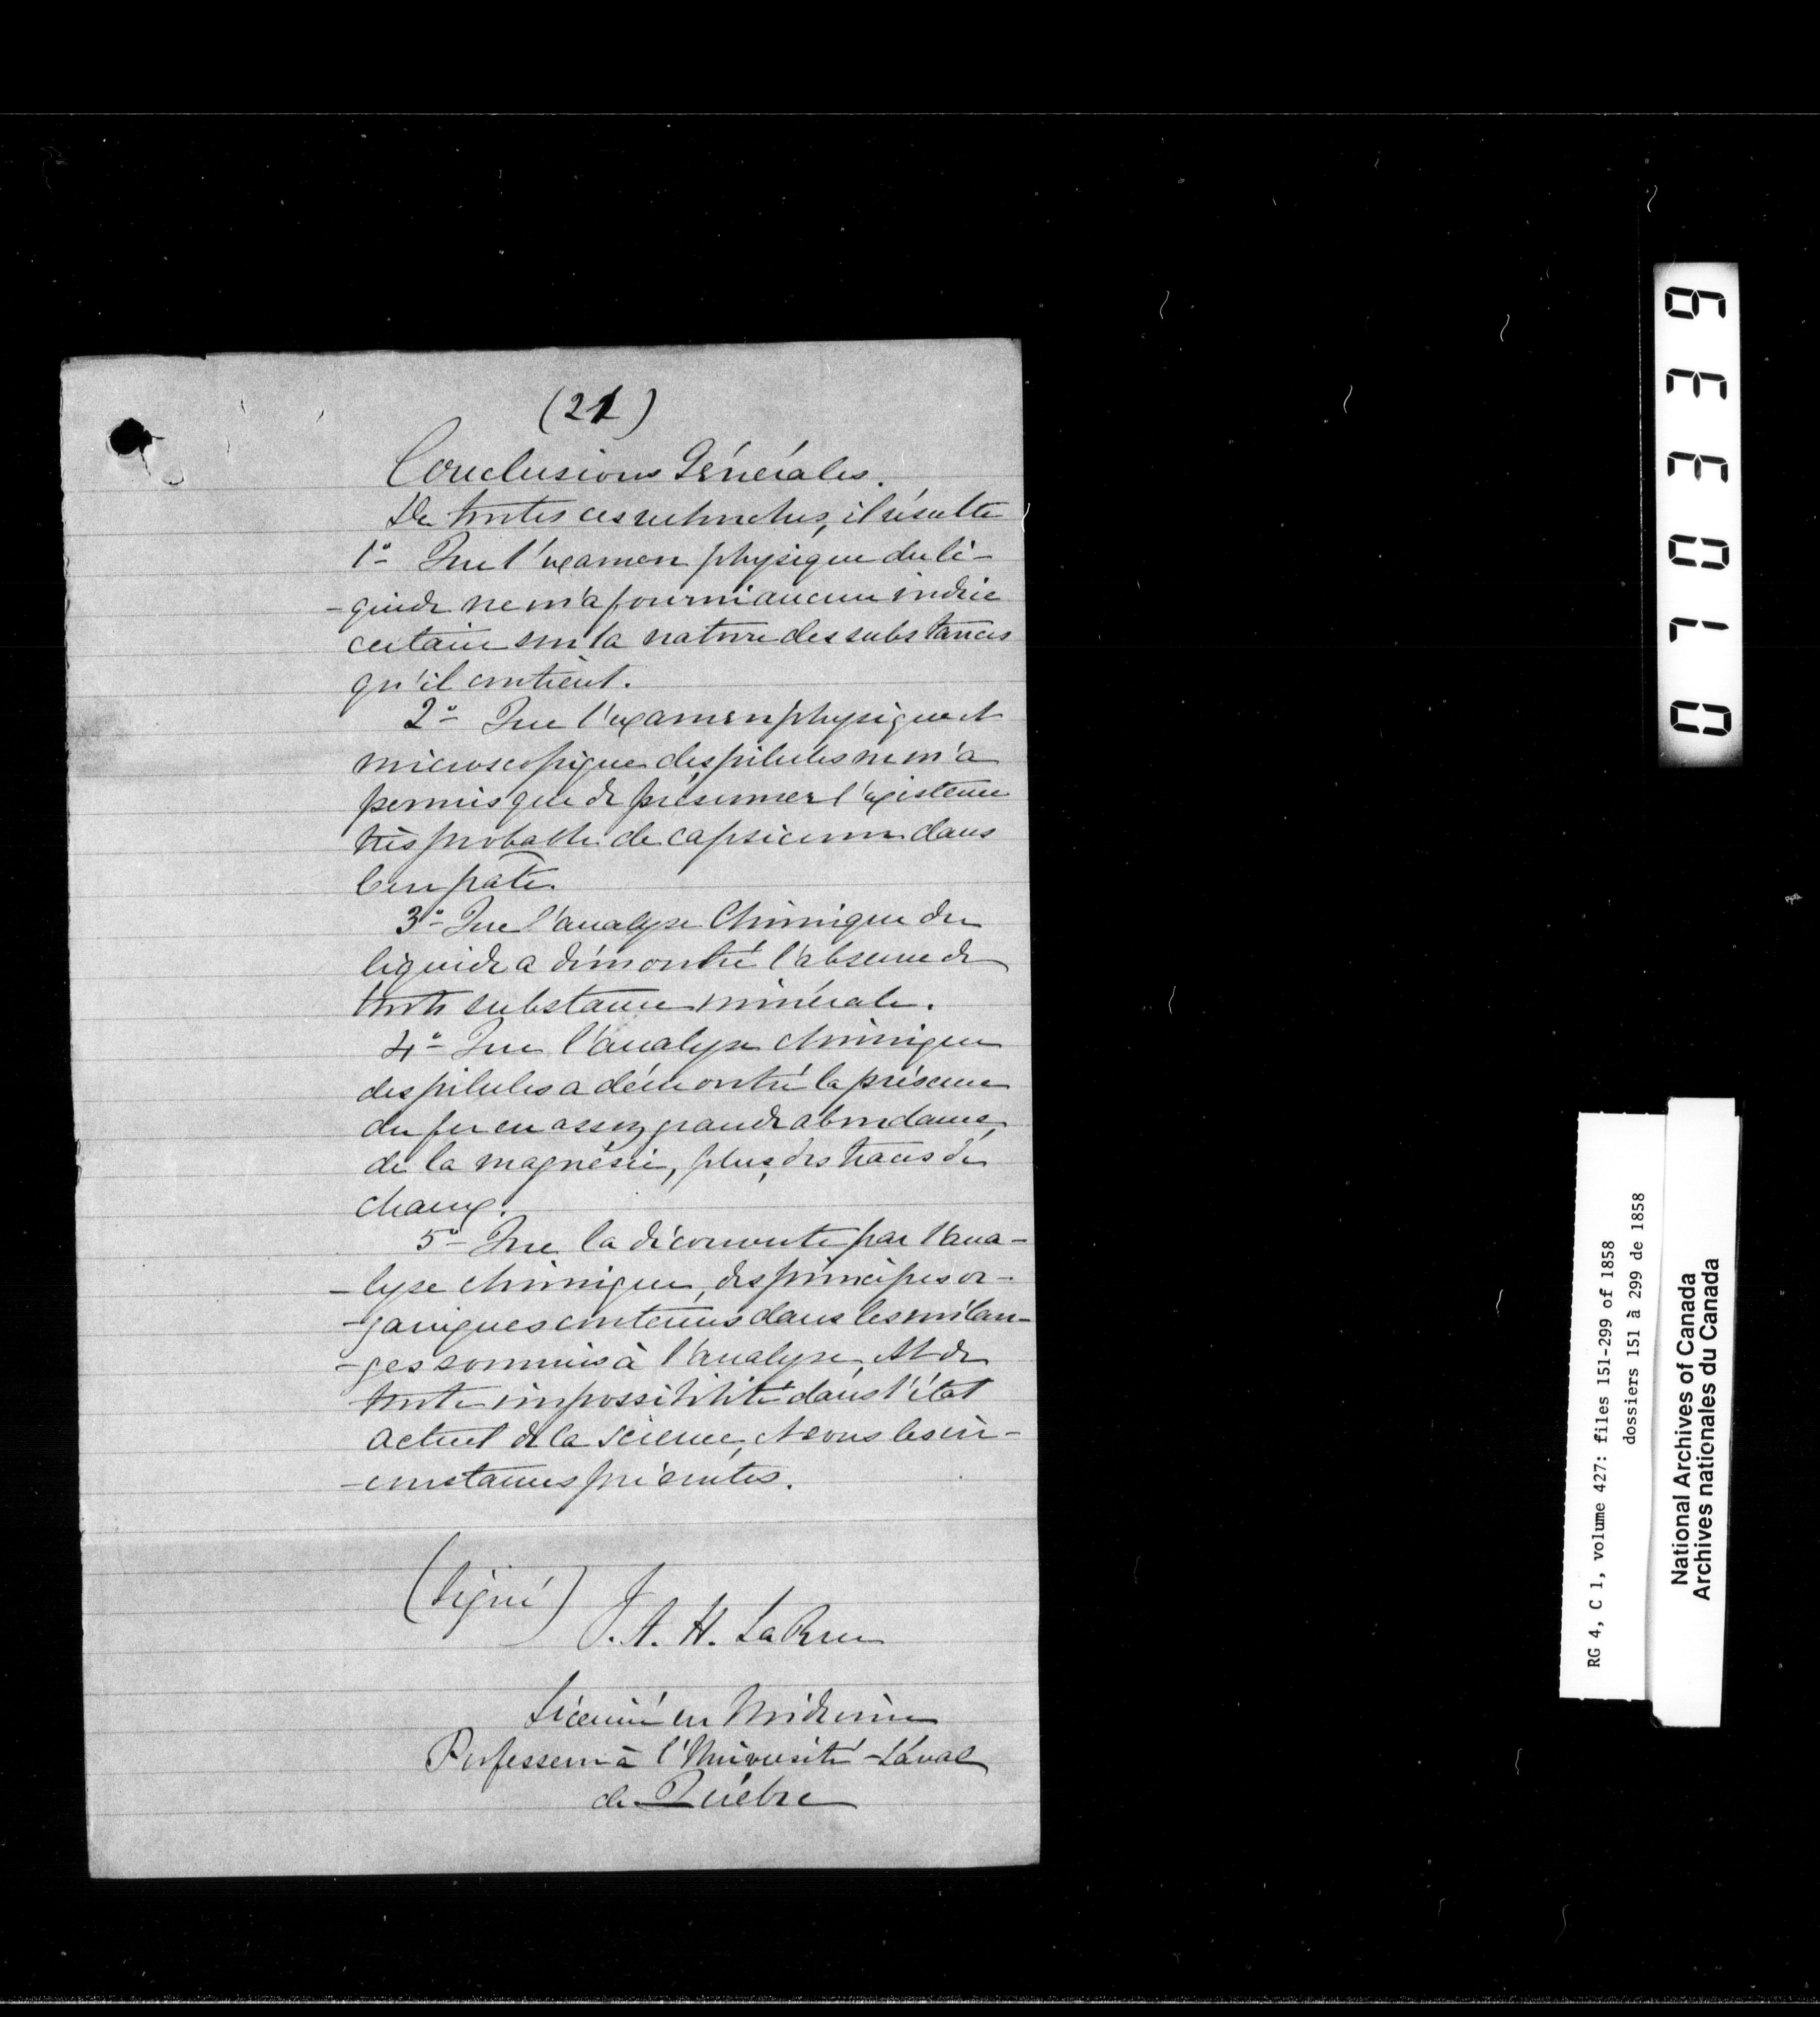 (21)
Conclusions Générales.
De toutes ces recherches, il résulte
1º- Que l'examen physique du li-
-quide ne m'a fourni aucun indice
certain sur la nature des substances
qu'il contient.
2º- Que l'examen physique et
microscopique des pilules ne m'a
permis que de présumer l'existence
très probable de capsicum dans
leur pâte.
3º- Que l'analyse Chimique du
liquide a démontré l'absence de
toute substance minérale.
4º- Que l'analyse chimique
des pilules a démontré la présence
du fer en assez grande abondance,
de la magnésie, plus, des traces de
chaux.
5º- Que la découverte par l'ana-
-lyse chimique, des principes or-
-ganiques contenus dans les mélan-
-ges soumis à l'analyse, est de
toute impossibilité dans l'état
actuel de la science, et sous les cir-
-constances présentes.
(Signé) J. A. H. LaRue
Licencié en Médecine
Professeur à l'Université-Laval
de Québec
010339
RG 4, C 1, volume 427: files 151-299 of 1858
dossiers 151 à 299 de 1858
National Archives of Canada
Archives nationales du Canada